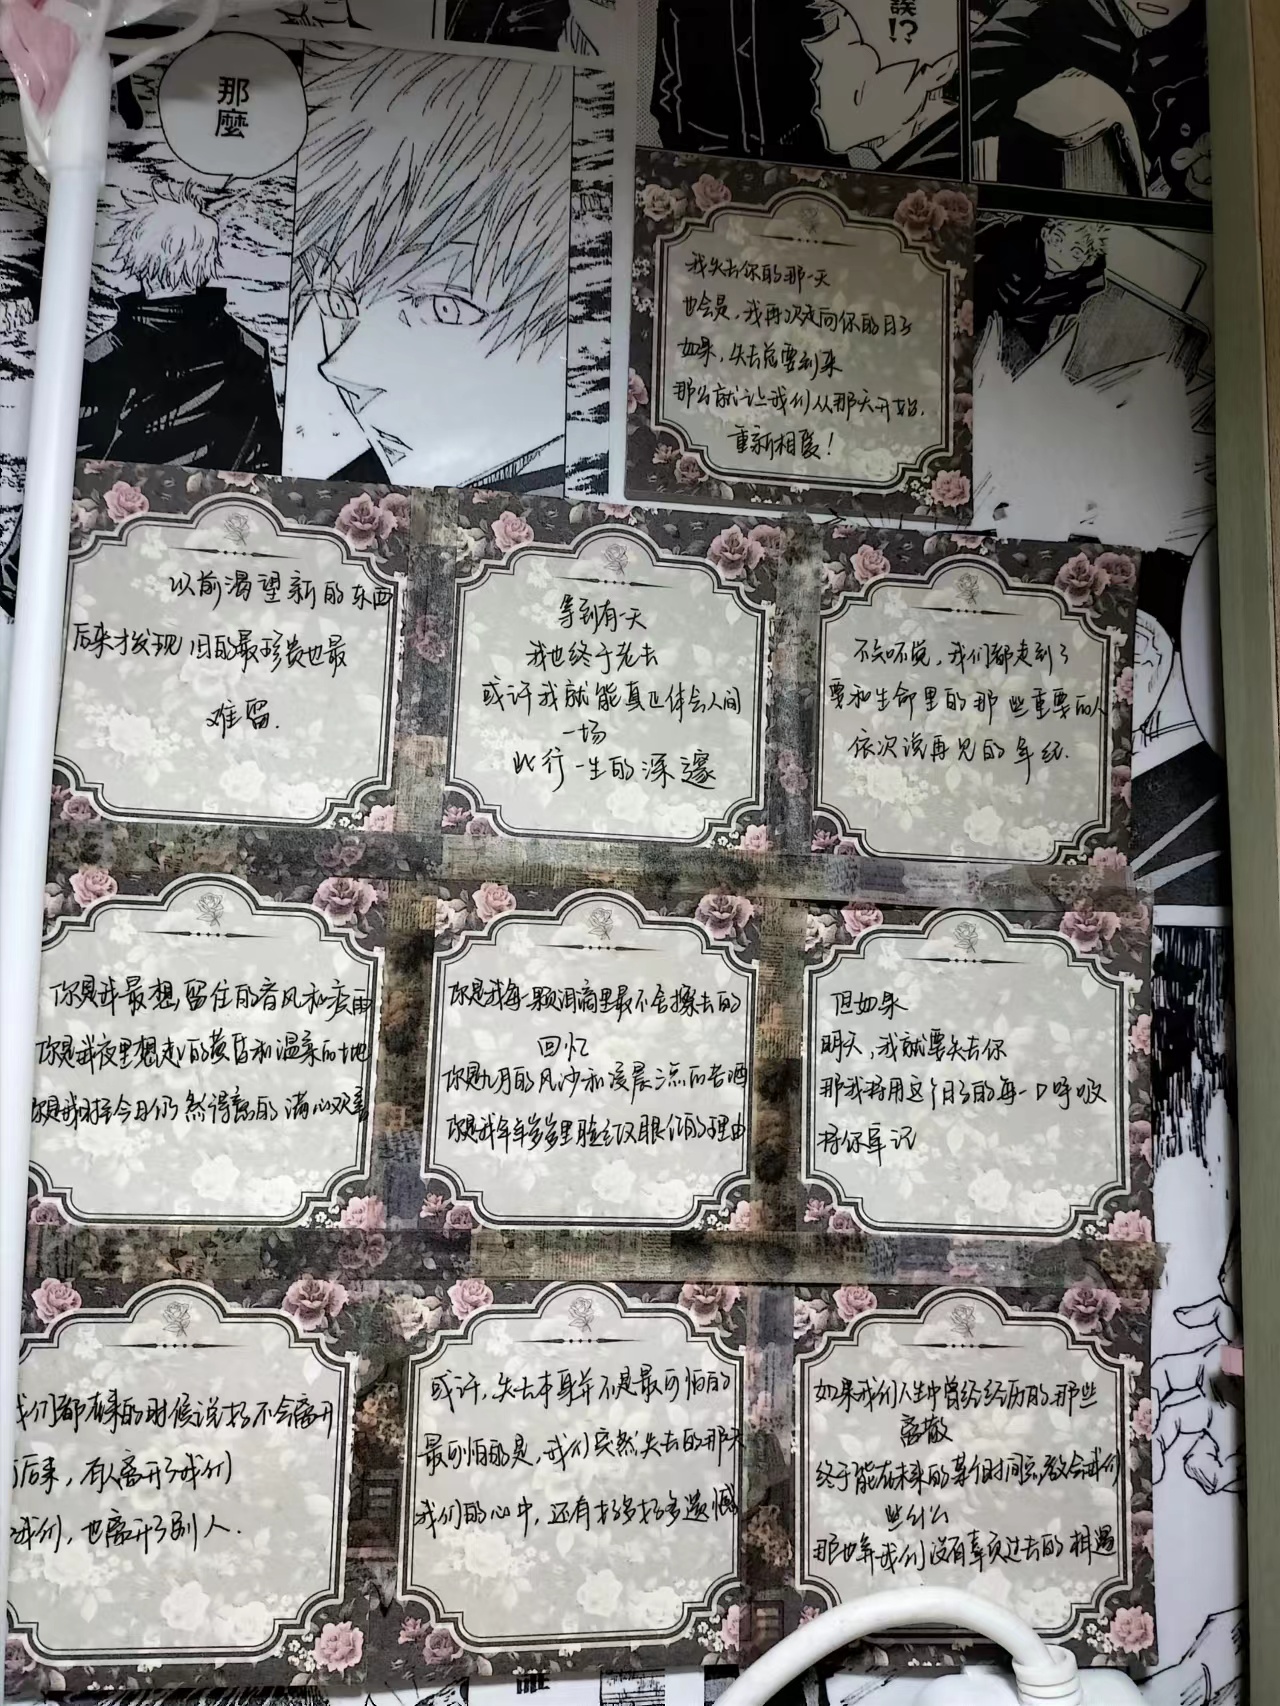 那麼
誤!?
我失去你的那一天
也会是,我再次走向你的日子
如果,失去总要到来
那么就让我们从那天开始.
重新相爱!
以前渴望新的东西
后来才发现旧的最珍贵也最
难留.
等到有一天
我也终于老去
或许我就能真正体会人间
一场
此行一生的深邃
不知不觉,我们都走到了
要和生命里的那些重要的人
依次说再见的年纪.
你是我最想留住的春风和疾雨
你是我夜里想起的黄昏和温柔的土地
你是我时至今日仍然得意的满心欢喜
你是我每一颗泪滴里最不舍擦去的
回忆
你是九月的风沙和凌晨三点的苦酒
你是我年年岁岁里脸红眼红的理由
但如果
明天,我就要失去你
那我将用这个日子的每一口呼吸
将你牢记
我们都在来的时候说好不会离开
后来,有人离开了我们
我们,也离开了别人.
或许,失去本身并不是最可怕的
最可怕的是,我们突然失去的那天
我们的心中,还有好多好多遗憾
如果我们人生中曾经经历的那些
离散
终于能在未来的某个时间点教会我们
些什么
那也算我们没有辜负过去的相遇